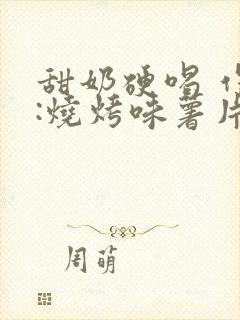 甜奶硬唱
:燒烤味薯片
周萌